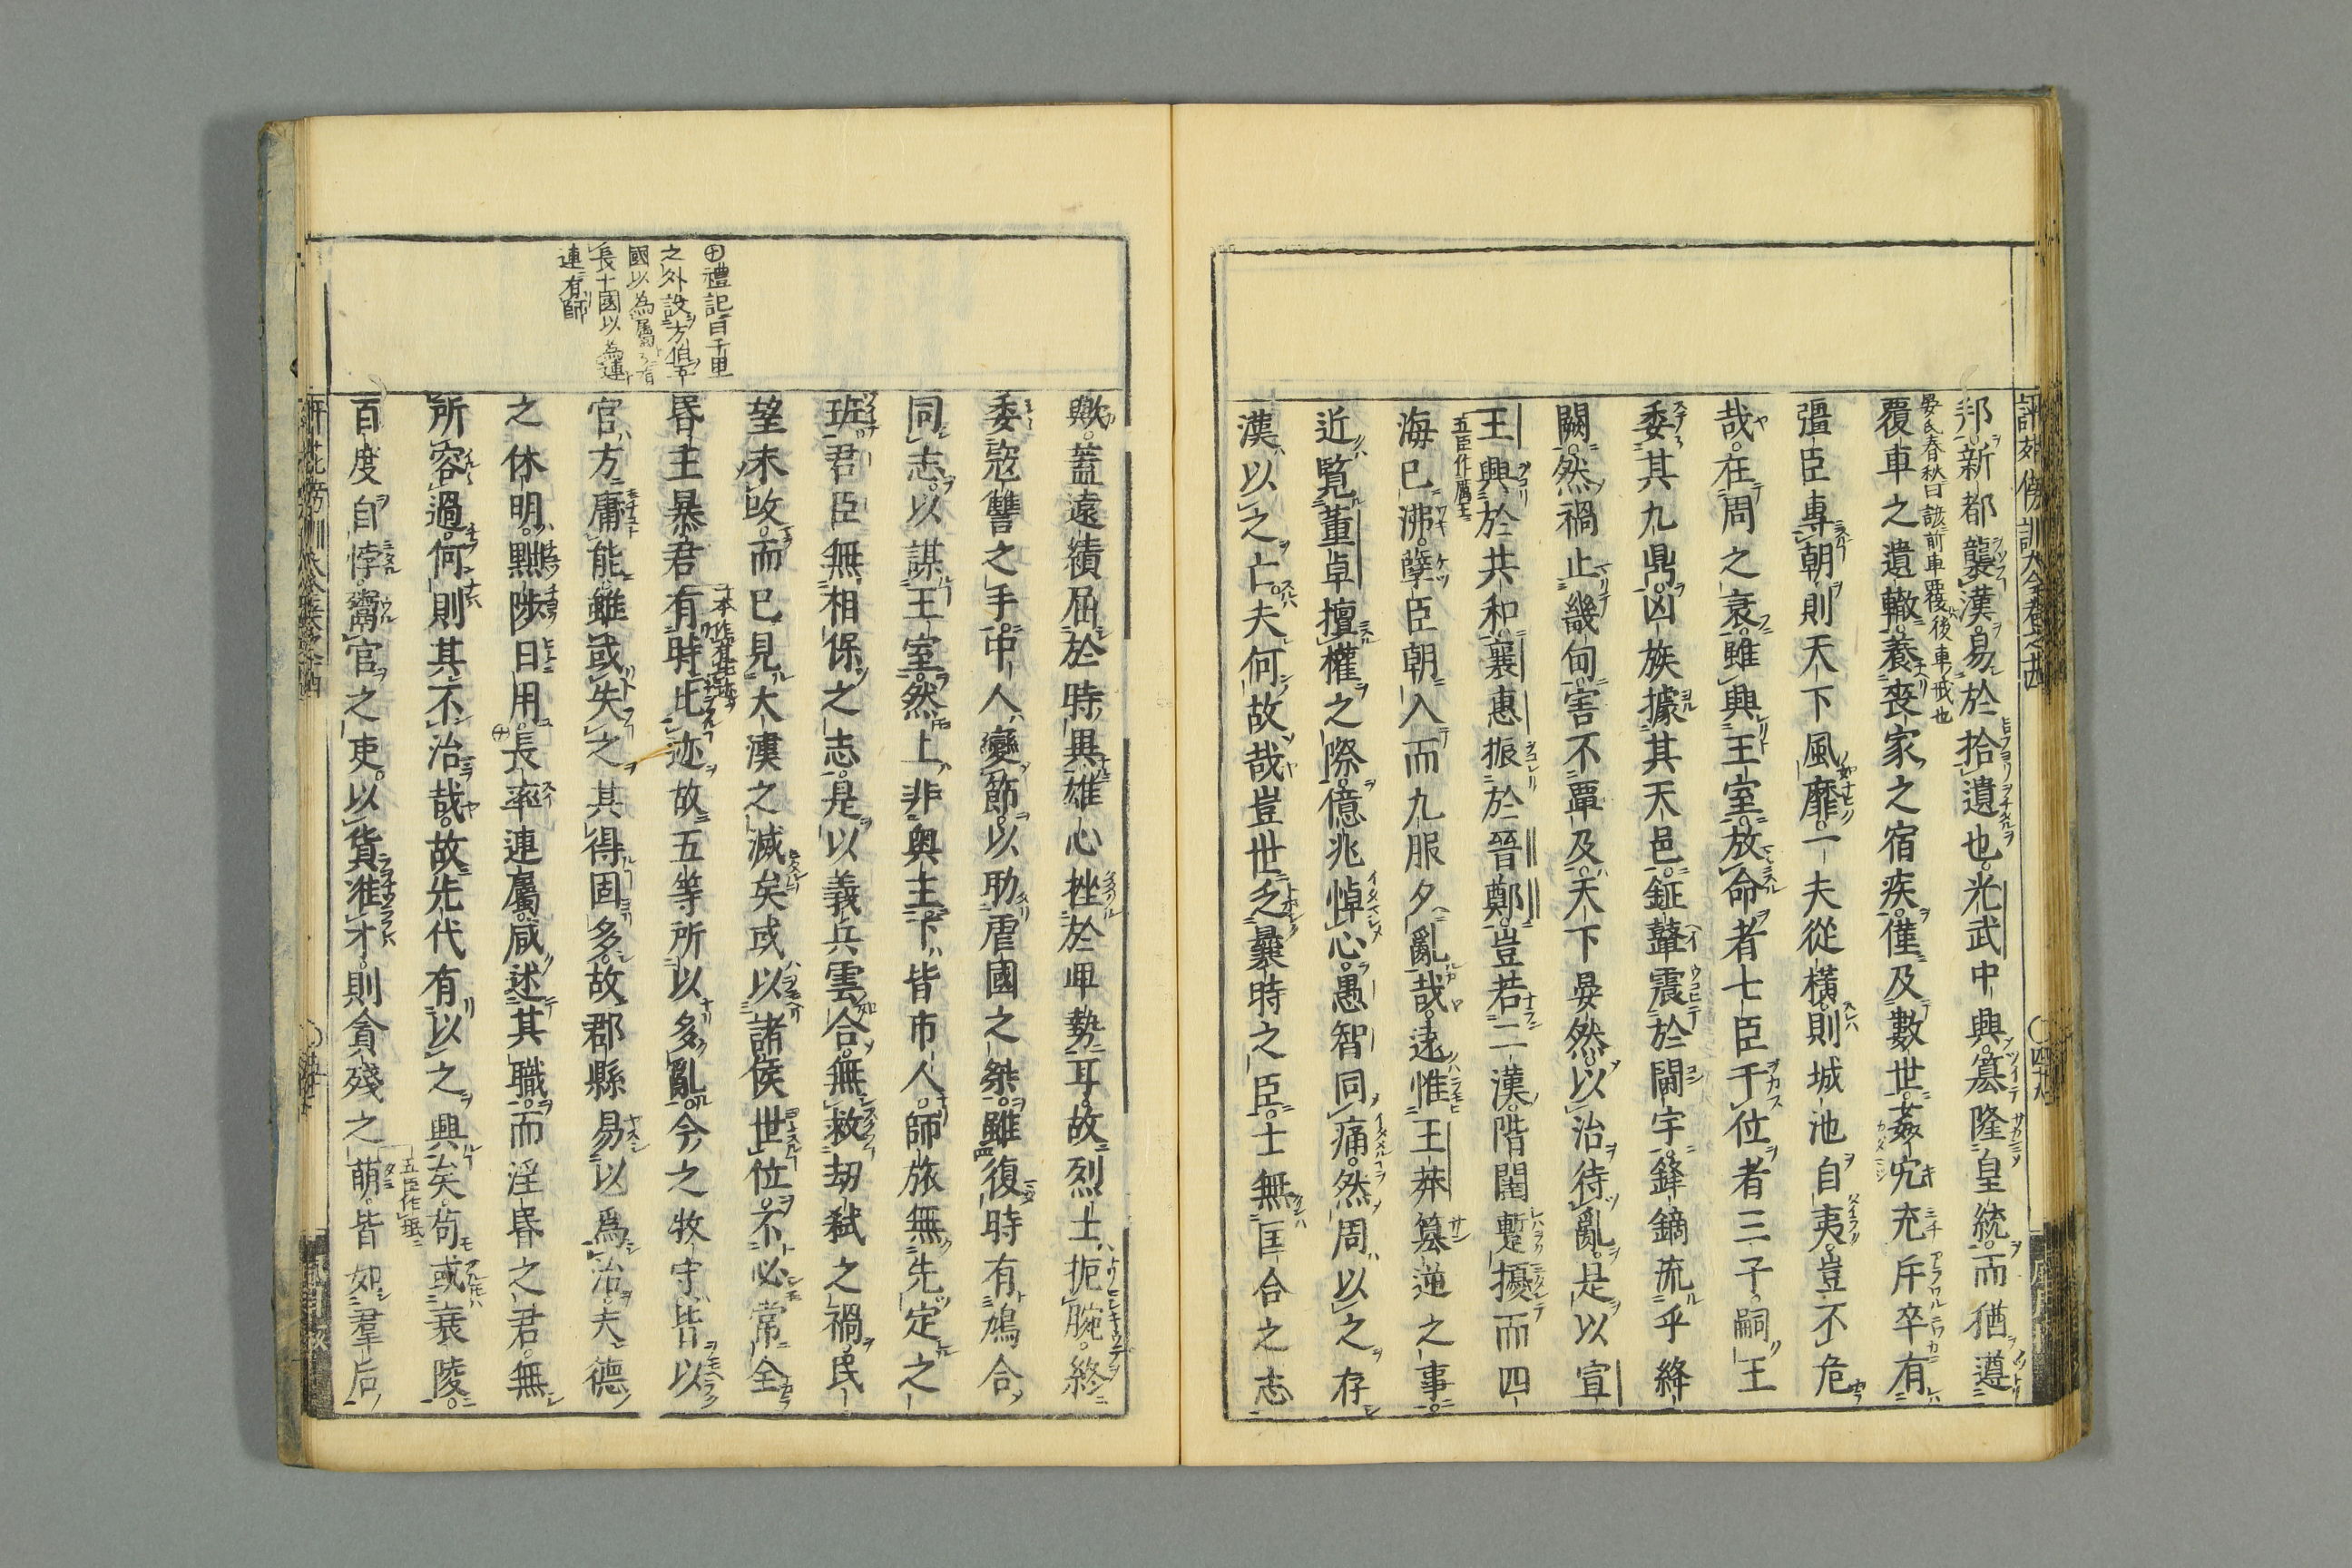 評苑傍訓大全卷之十四
邦新都襲漢易於拾遺也光武中興簒隆皇統而猶遵
晏氏春秋曰諺前車覆後車戒也
覆車之遺轍養喪家之宿疾僅及數世姦宄充斥卒有
彊臣專朝則天下風靡一夫從橫則城池自夷豈不危
哉在周之衰雖興王室放命者七臣干位者三子嗣王
委其九鼎凶族據其天邑鉦鼙震於閫宇鋒鏑流乎絳
闕然禍止畿甸害不覃及天下晏然以治待亂是以宣
王興於共和襄惠振於晉鄭豈若二漢階闥蹔擾而四
五臣作厲王
海已沸孽臣朝入而九服夕亂哉遠惟王莽簒逆之事
近覧董卓擅權之際億兆悼心愚智同痛然周以之存
漢以之亡夫何故哉豈世乏曩時之臣士無匡合之志
歟蓋遠績屈於時異雄心挫於卑勢耳故烈士扼腕終
委寇讐之手中人變節以助虐國之桀雖復時有鳩合
同志以謀王室然上非奥主下皆市人師旅無先定之
班君臣無相保之志是以義兵雲合無救劫弑之禍民
望未改而已見大漢之滅矣或以諸侯世位不必常全
昏主暴君有時比迹故五等所以多亂今之牧守皆以
官方庸能雖或失之其得固多故郡縣易以爲治夫德
之休明黜陟日用㊉長率連屬咸述其職而淫昏之君無
所容過何則其不治哉故先代有以之興矣苟或衰陵
百度自悖鬻官之吏以貨准才則貪殘之萌皆如羣后
五臣作氓
㊉禮記曰千里
之外設方伯五
國以為屬屬有
長十國以為連
連有師